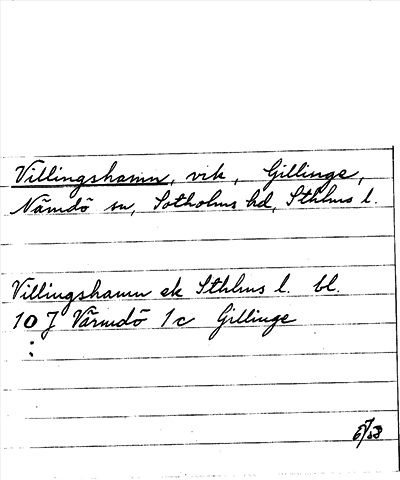 Villingshamn, vik, Gillinge,
Nämdö sn, Sotholms hd, Sthlms l.
Villingshamn ek Sthlms l. bl.
10 J Värmdö 1c Gillinge
: